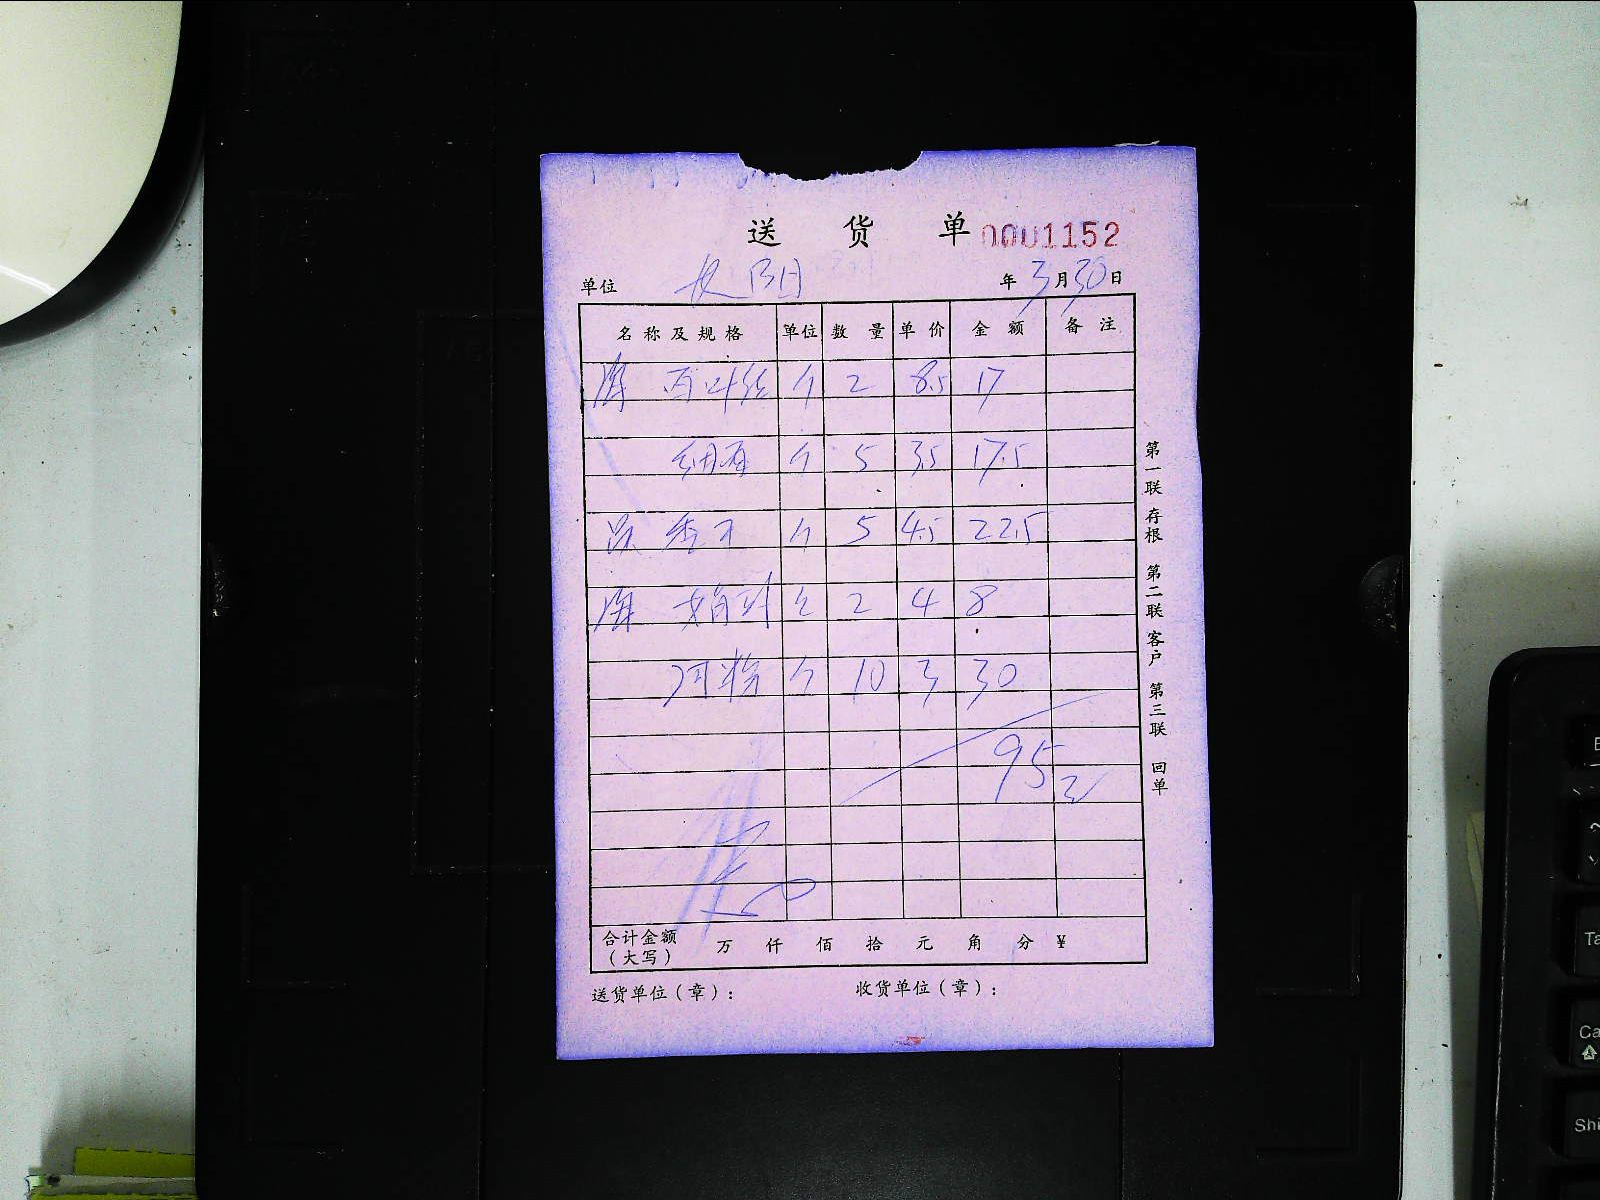 送 货 单 0001152
单位 年 3 月 30 日
名称及规格 单位 数量 单价 金额 备注
百叶丝 个 2 8.5 17
个 5 3.5 17.5
个 5 4.5 22.5
2 4 8
河粉 个 10 3 30
95
合计金额 万 仟 佰 拾 元 角 分 ¥
(大写)
送货单位(章): 收货单位(章):
第一联 存根 第二联 客户 第三联 回单
Ta
Ca
Shi